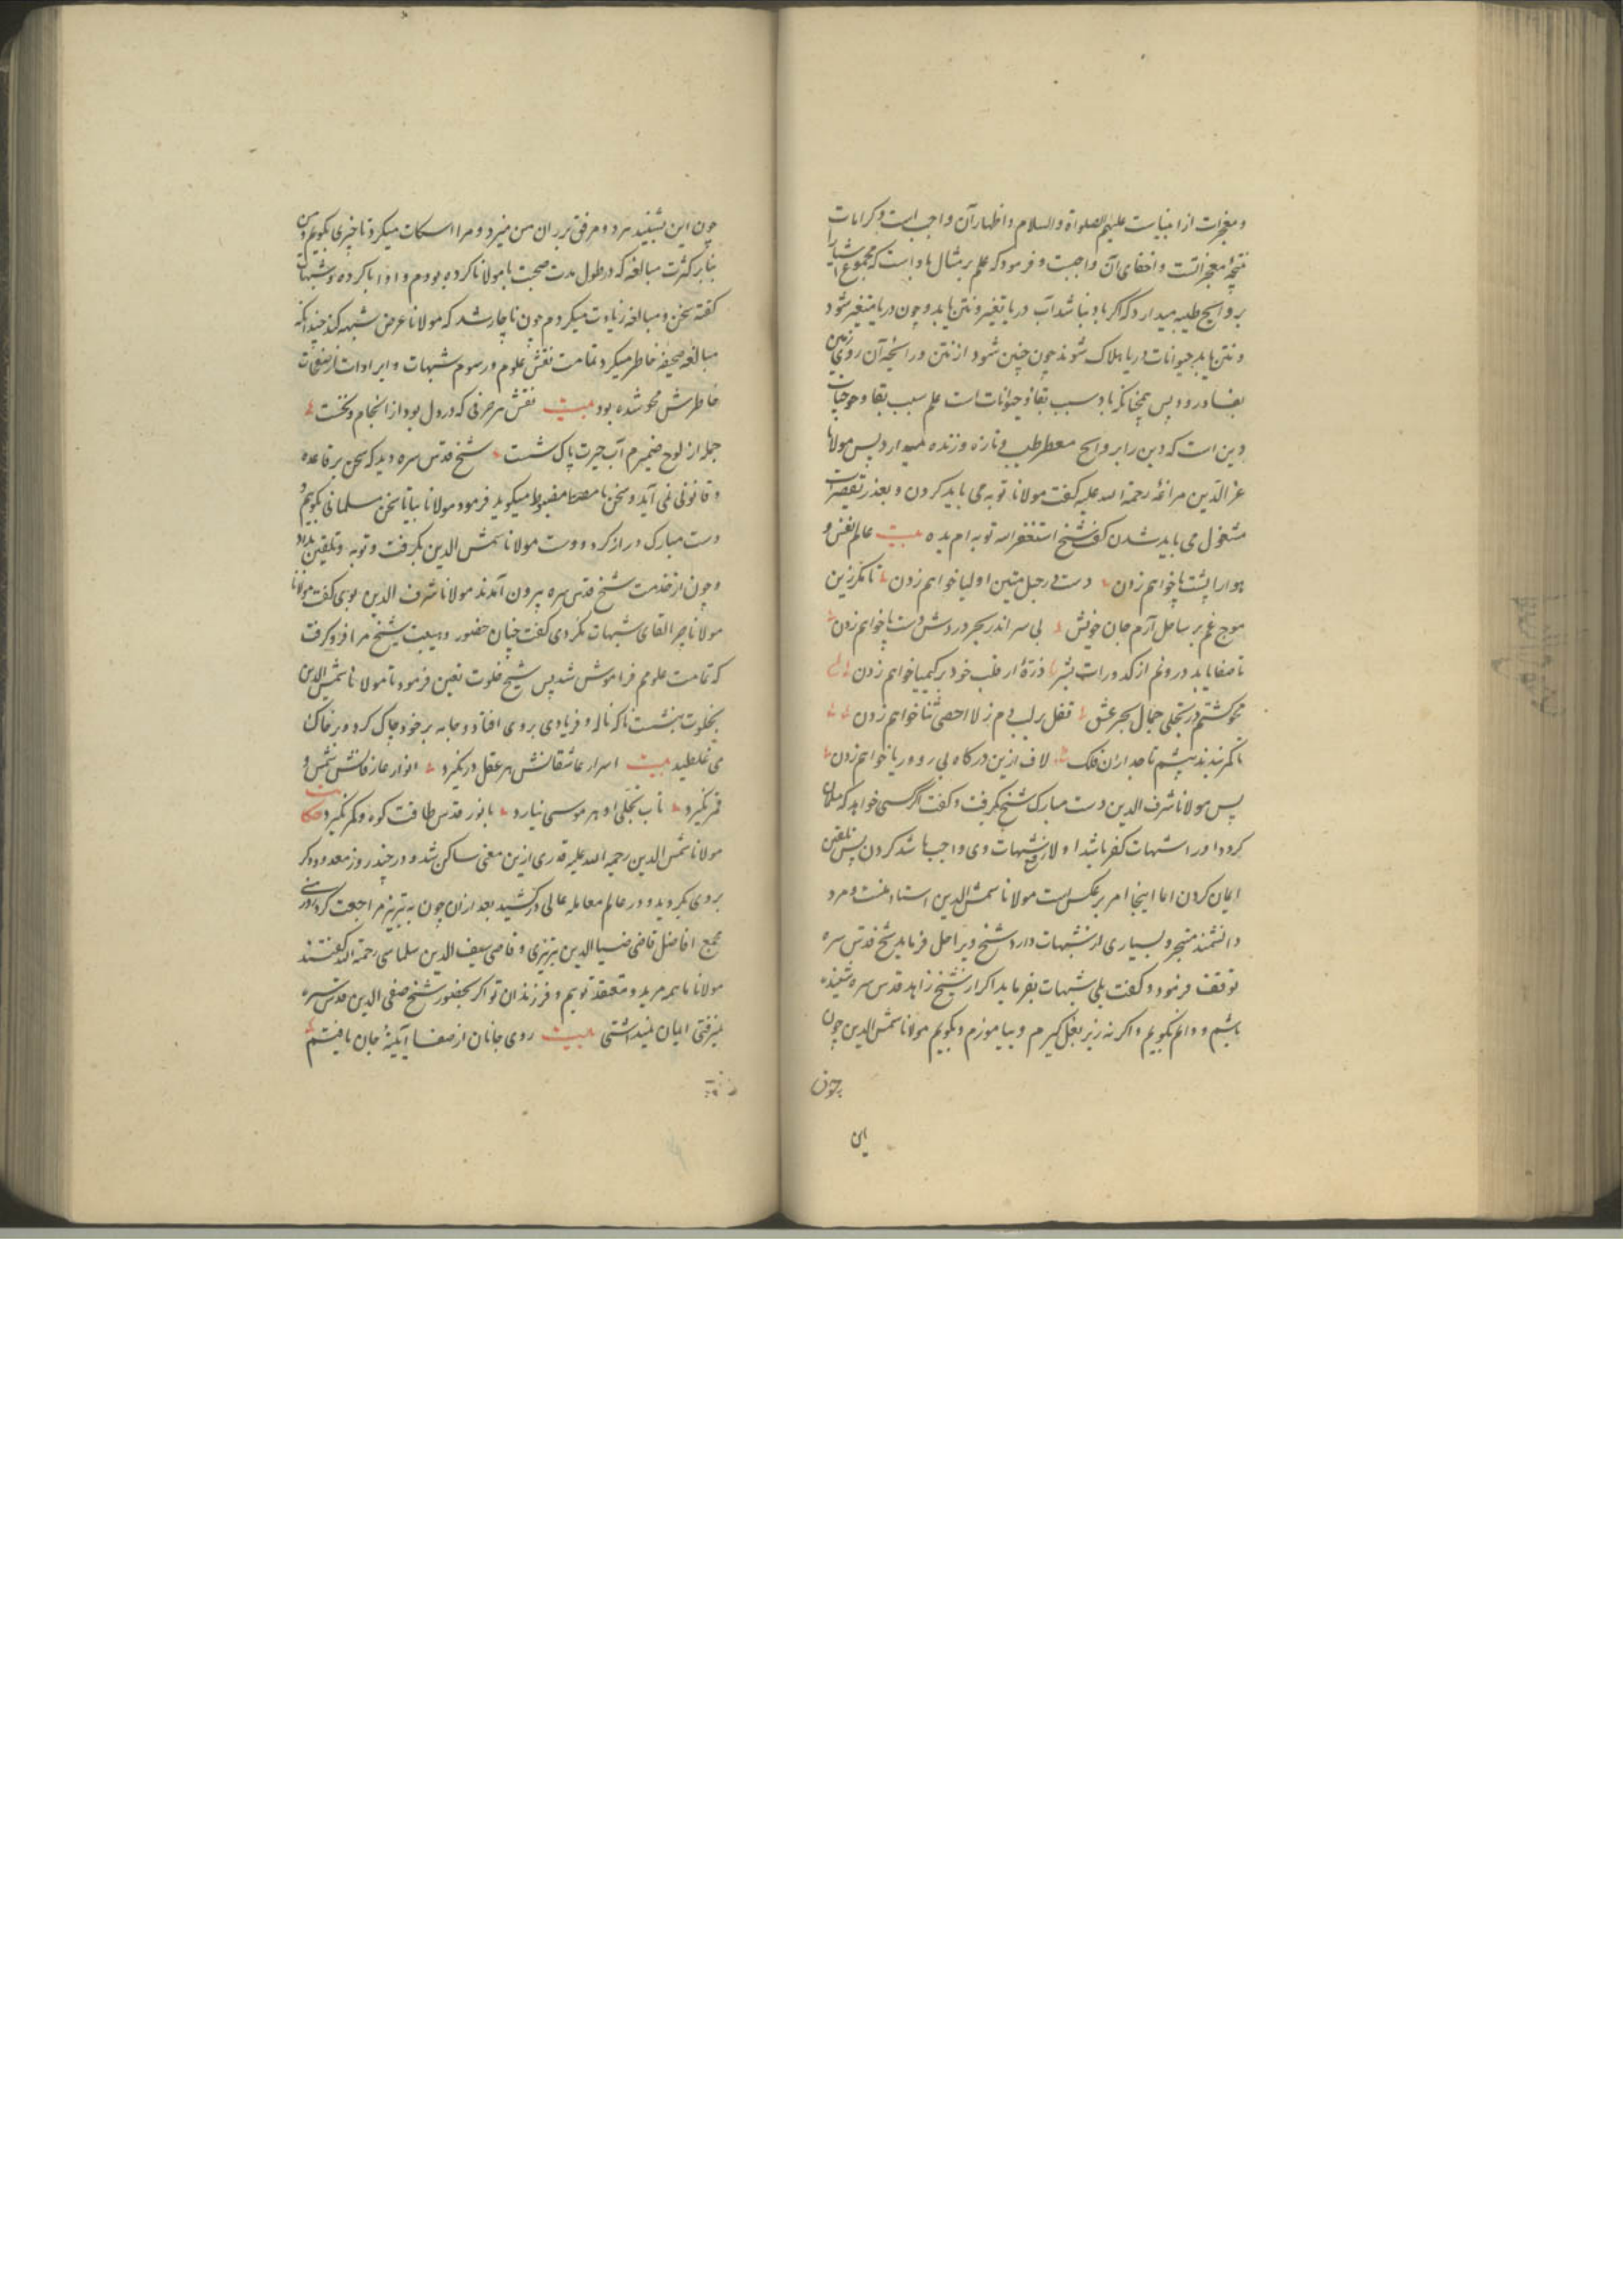 و معجزات از انبیاست علیهم الصلوة والسلام و اظهار آن واجب است و کرامات
نتیجهٔ معجزاتست و اخفای آن واجبست و فرمود که علم بر مثال باد است که مجموع اشیا را
بروایح طیبه میدارد که اگر باد نباشد آب دریا تغیر و نتن یابد و چون دریا متغیر شود
و نتن یابد حیوانات دریا هلاک شوند چون چنین شود از نتن و رائحه آن روی زمین
بفساد رود پس همچنانکه باد سبب بقا و حیوانات است علم سبب بقا و حیات
دین است که دین را بروایح معطر طیب و تازه و زنده میدارد پس مولانا
عز الدین مراغهٔ رحمة الله علیه گفت مولانا توبه می باید کردن و بعذر تقصیرات
مشغول می باید شدن گفت شیخ استغفر الله توبه ام بده بیت عالم نفس و
هوا را پشت پا خواهم زدن دست در حبل متین اولیا خواهم زدن تا مگر زین
موج غم بر ساحل آرم جان خویش بی سر اندر بحر دردش دست و پا خواهم زدن
تا صفا یابد درونم از کدورات بشر ذرهٔ از قلب خود بر کیمیا خواهم زدن
محو گشتم در تجلی جمال بحر عشق قفل بر لب دم ز لا احصی ثنا خواهم زدن
تا کمر بندند پیشم تاجداران فلک لاف ازین درگاه بی روی و ریا خواهم زدن
پس مولانا شرف الدین دست مبارک شیخ بگرفت و گفت اگر کسی خواهد که مسلمان
گردد او را شبهات کفر باشد اولا رفع شبهات وی واجب باشد کردن پس تلقین
ایمان کردن اما اینجا امر بر عکس است مولانا شمس الدین استاد منست و مرد
دانشمند متبحر و بسیاری از شبهات دارد شیخ ویرا حل فرماید شیخ قدس سره
توقف فرمود و گفت بلی شبهات بفرماید اگر از شیخ زاهد قدس سره شنیده
باشم و دانم بگویم و اگر نه زیر بغل گیرم و بیاموزم و بگویم مولانا شمس الدین چون
چون
این
چون این بشنید هر دو مرفق بر ران من میزد و مرا اسکات میکرد تا چیزی نگویم و من
بنابر کثرت مبالغه که در طول مدت صحبت با مولانا کرده بودم و او ابا کرده و شبهات
گفته سخن و مبالغه زیادت میکردم چون ناچار شد که مولانا عرض شبهه کند چندانکه
مبالغه صحیفه خاطر میکرد تمامت نقش علوم و رسوم شبهات و ایرادات از صفحات
خاطرش محو شده بود بیت نقش هر حرفی که در دل بود از انجام و نخست
جمله از لوح ضمیرم آب حیرت پاک شست شیخ قدس سره دید که سخن بر قاعده
و قانونی نمی آید و سخن نا مضبوط میگوید فرمود مولانا بیا تا سخن مسلمانی بگوییم و
دست مبارک دراز کرد و دست مولانا شمس الدین بگرفت و توبه و تلقین بداد
و چون از خدمت شیخ قدس سره بیرون آمدند مولانا شرف الدین بوی گفت مولانا
مولانا چرا القای شبهات نکردی گفت چنان حضور و هیبت شیخ مرا فرو گرفت
که تمامت علومم فراموش شد پس شیخ خلوت تعین فرمود تا مولانا شمس الدین
بخلوت بنشست ناگه ناله و فریادی بر وی افتاد و جامه بر خود چاک کرد و بر خاک
می غلطید بیت اسرار عاشقانش هر عقل در نگیرد انوار عارفانش شمس و
قمر نگیرد تاب تجلی او هر موسی نیارد با نور قدس طاقت کوه و کمر نگیرد حکایت
مولانا شمس الدین رحمة الله علیه قدری ازین معنی ساکن شد و در چند روز معدود دگر
بروی بگردید و در عالم معامله عالی درکشید بعد از آن چون به تبریز مراجعت کرد روزی در
مجمع افاضل قاضی ضیا الدین تبریزی و قاضی سیف الدین سلماسی رحمة الله گفتند
مولانا ما همه مرید و معتقد توییم و فرزندان تو اگر بحضور شیخ صفی الدین قدس سره
نمیرفتی ایمان نمیداشتی بیت روی جانان از صفا آیینهٔ جان یافتیم